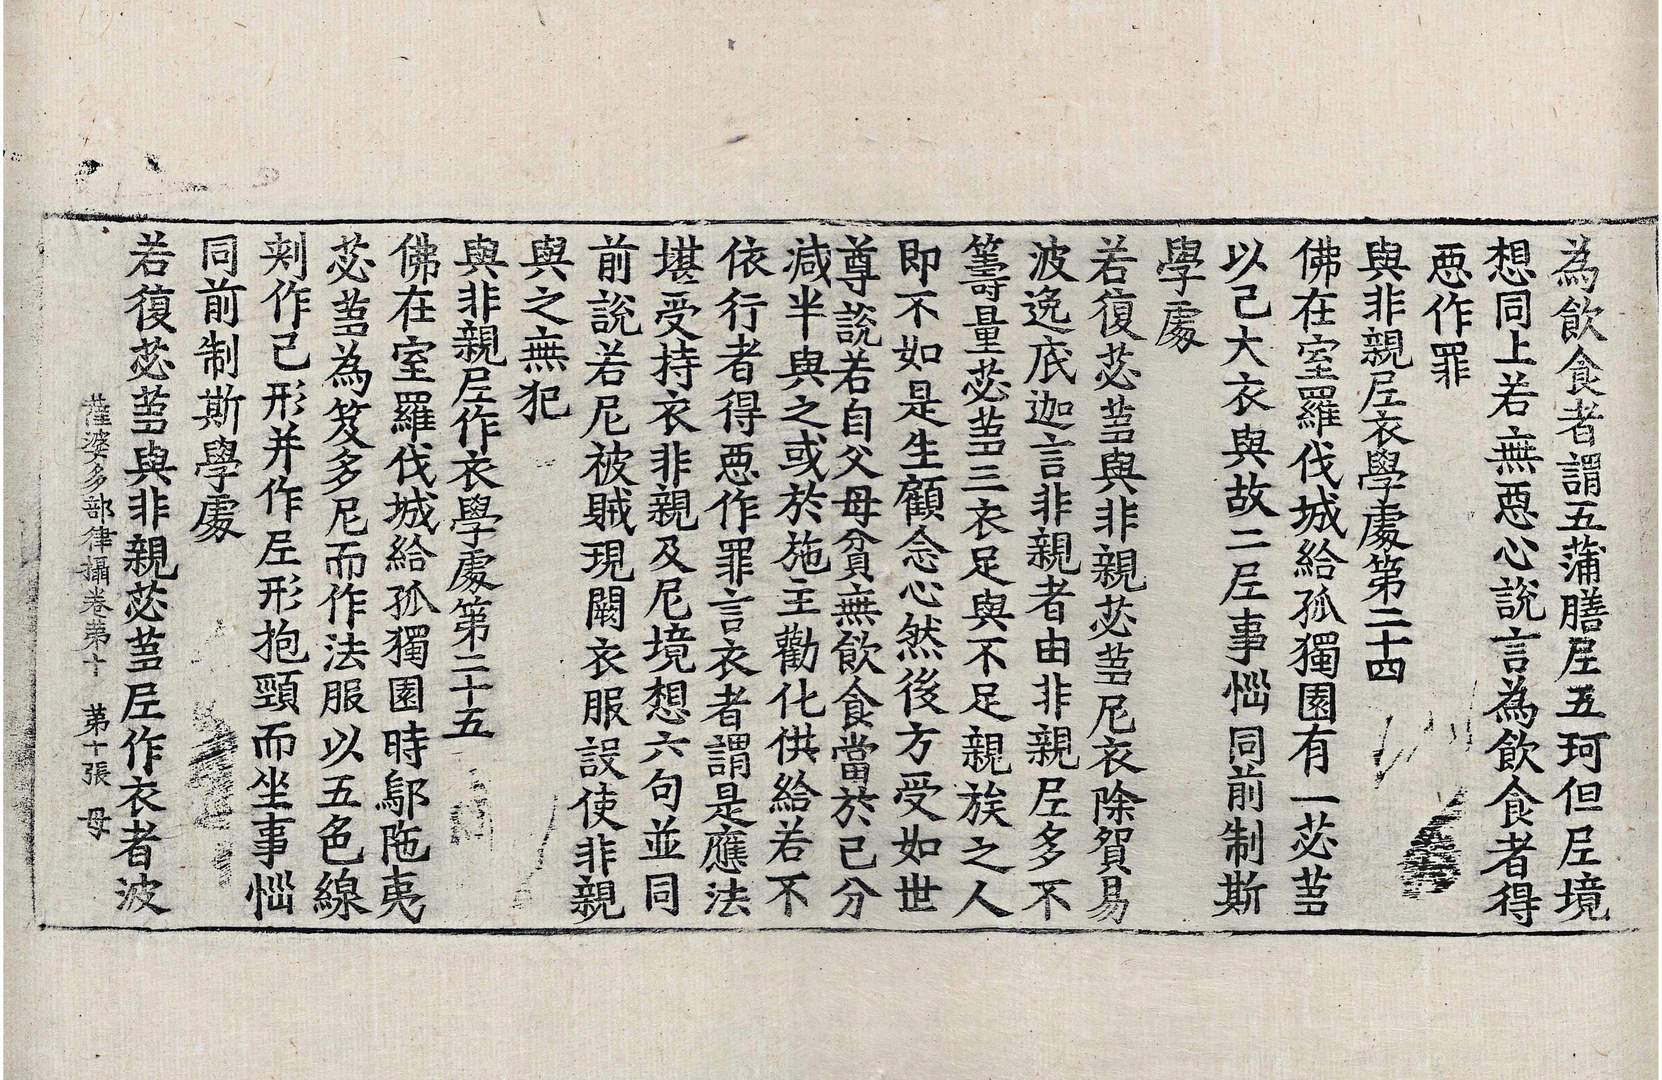 為飲食者謂五蒲膳𡰱五珂但𡰱境
想同上若無惡心說言為飲食者得
惡作罪
與非親𡰱衣學處第二十四
佛在室羅伐城給孤獨園有一苾蒭
以己大衣與故二𡰱事惱同前制斯
學處
若復苾蒭與非親苾蒭尼衣除貿易
波逸底迦言非親者由非親𡰱多不
籌量苾蒭三衣足與不足親族之人
即不如是生顧念心然後方受如世
尊說若自父母貧無飲食當於己分
減半與之或於施主勸化供給若不
依行者得惡作罪言衣者謂是應法
堪受持衣非親及尼境想六句並同
前說若尼被賊現闕衣服設使非親
與之無犯
與非親𡰱作衣學處第二十五
佛在室羅伐城給孤獨園時鄔陁夷
苾蒭為笈多尼而作法服以五色線
刺作己形并作𡰱形抱頸而坐事惱
同前制斯學處
若復苾蒭與非親苾蒭𡰱作衣者波
薩婆多部律攝卷第十　第十張　母